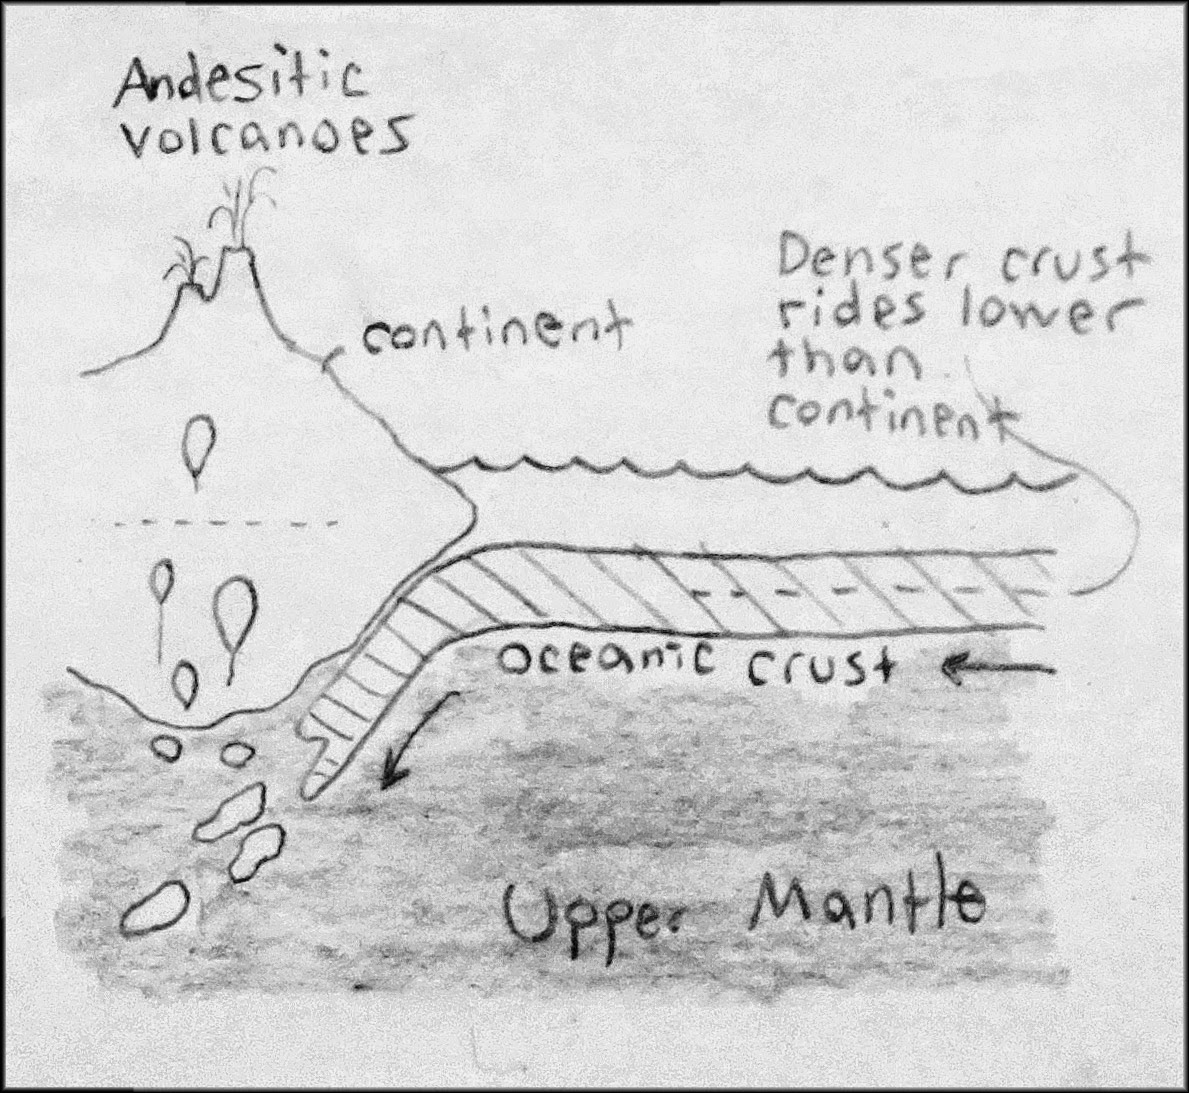 Andesitic
volcanoes
continent
Denser crust
rides lower
than
continent
oceanic crust
Upper Mantle